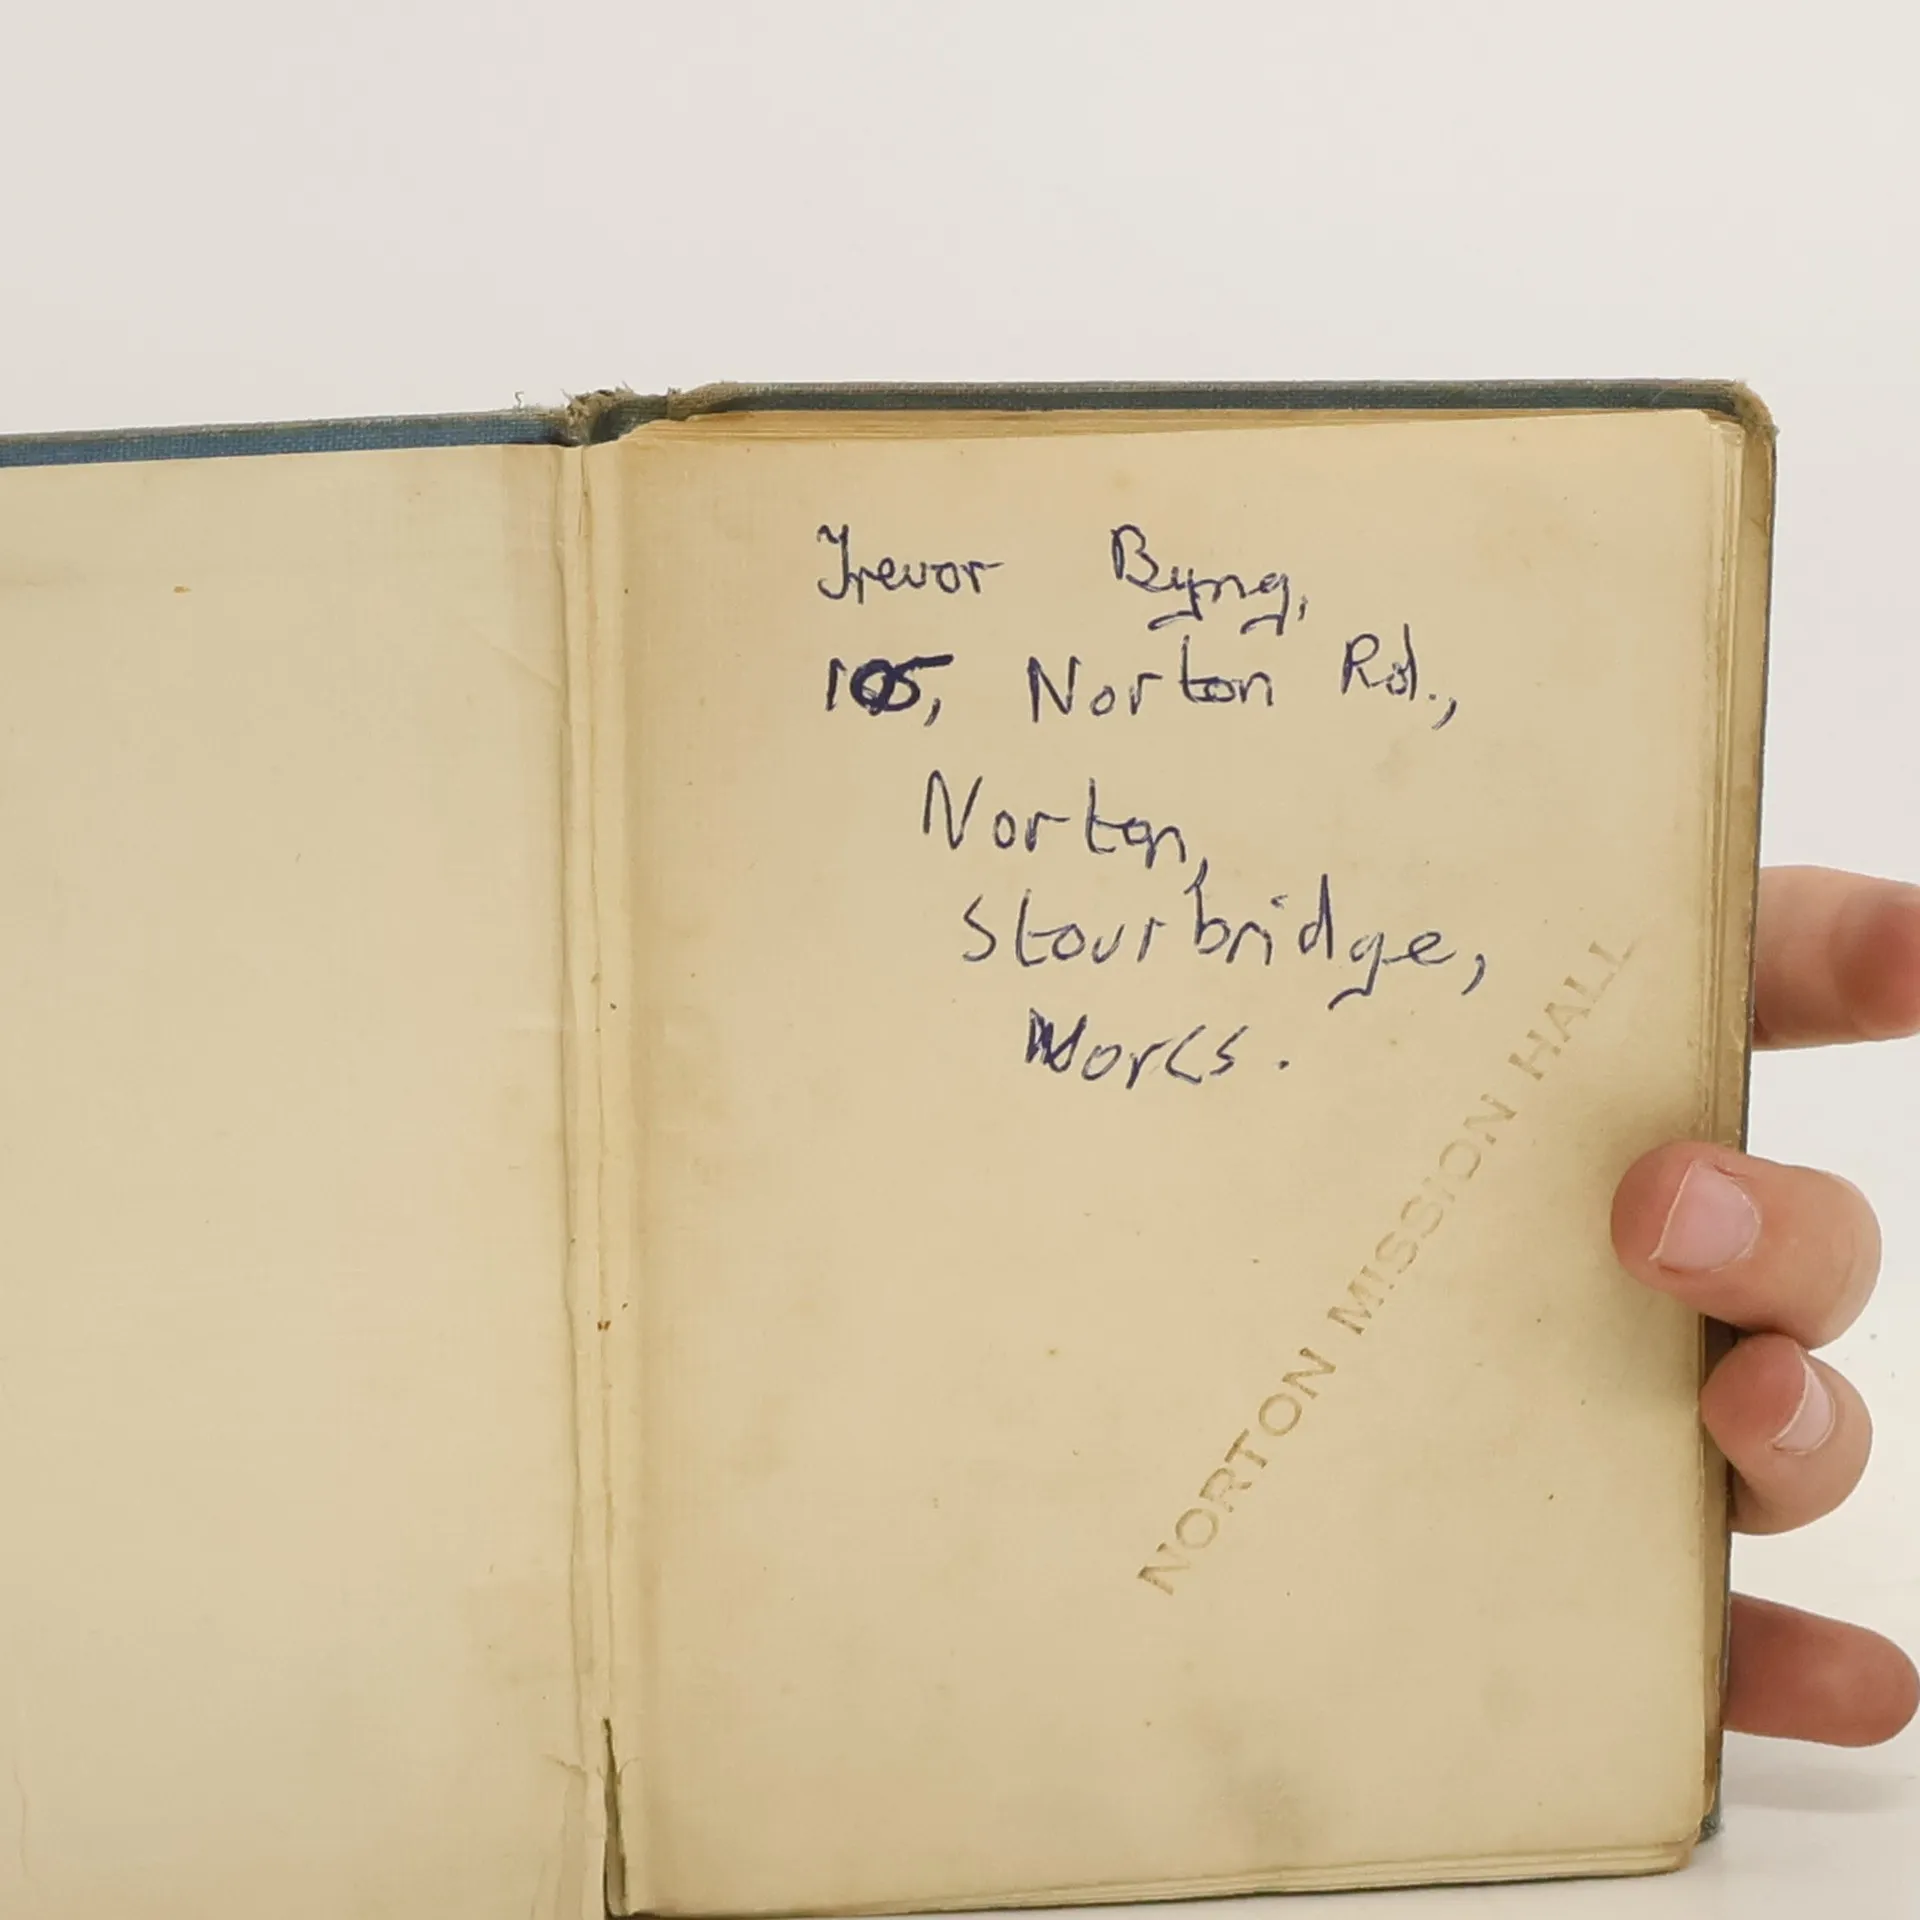 Trevor Byng,
105, Norton Rd.,
Norton,
Stourbridge,
Worcs.
NORTON MISSION HALL